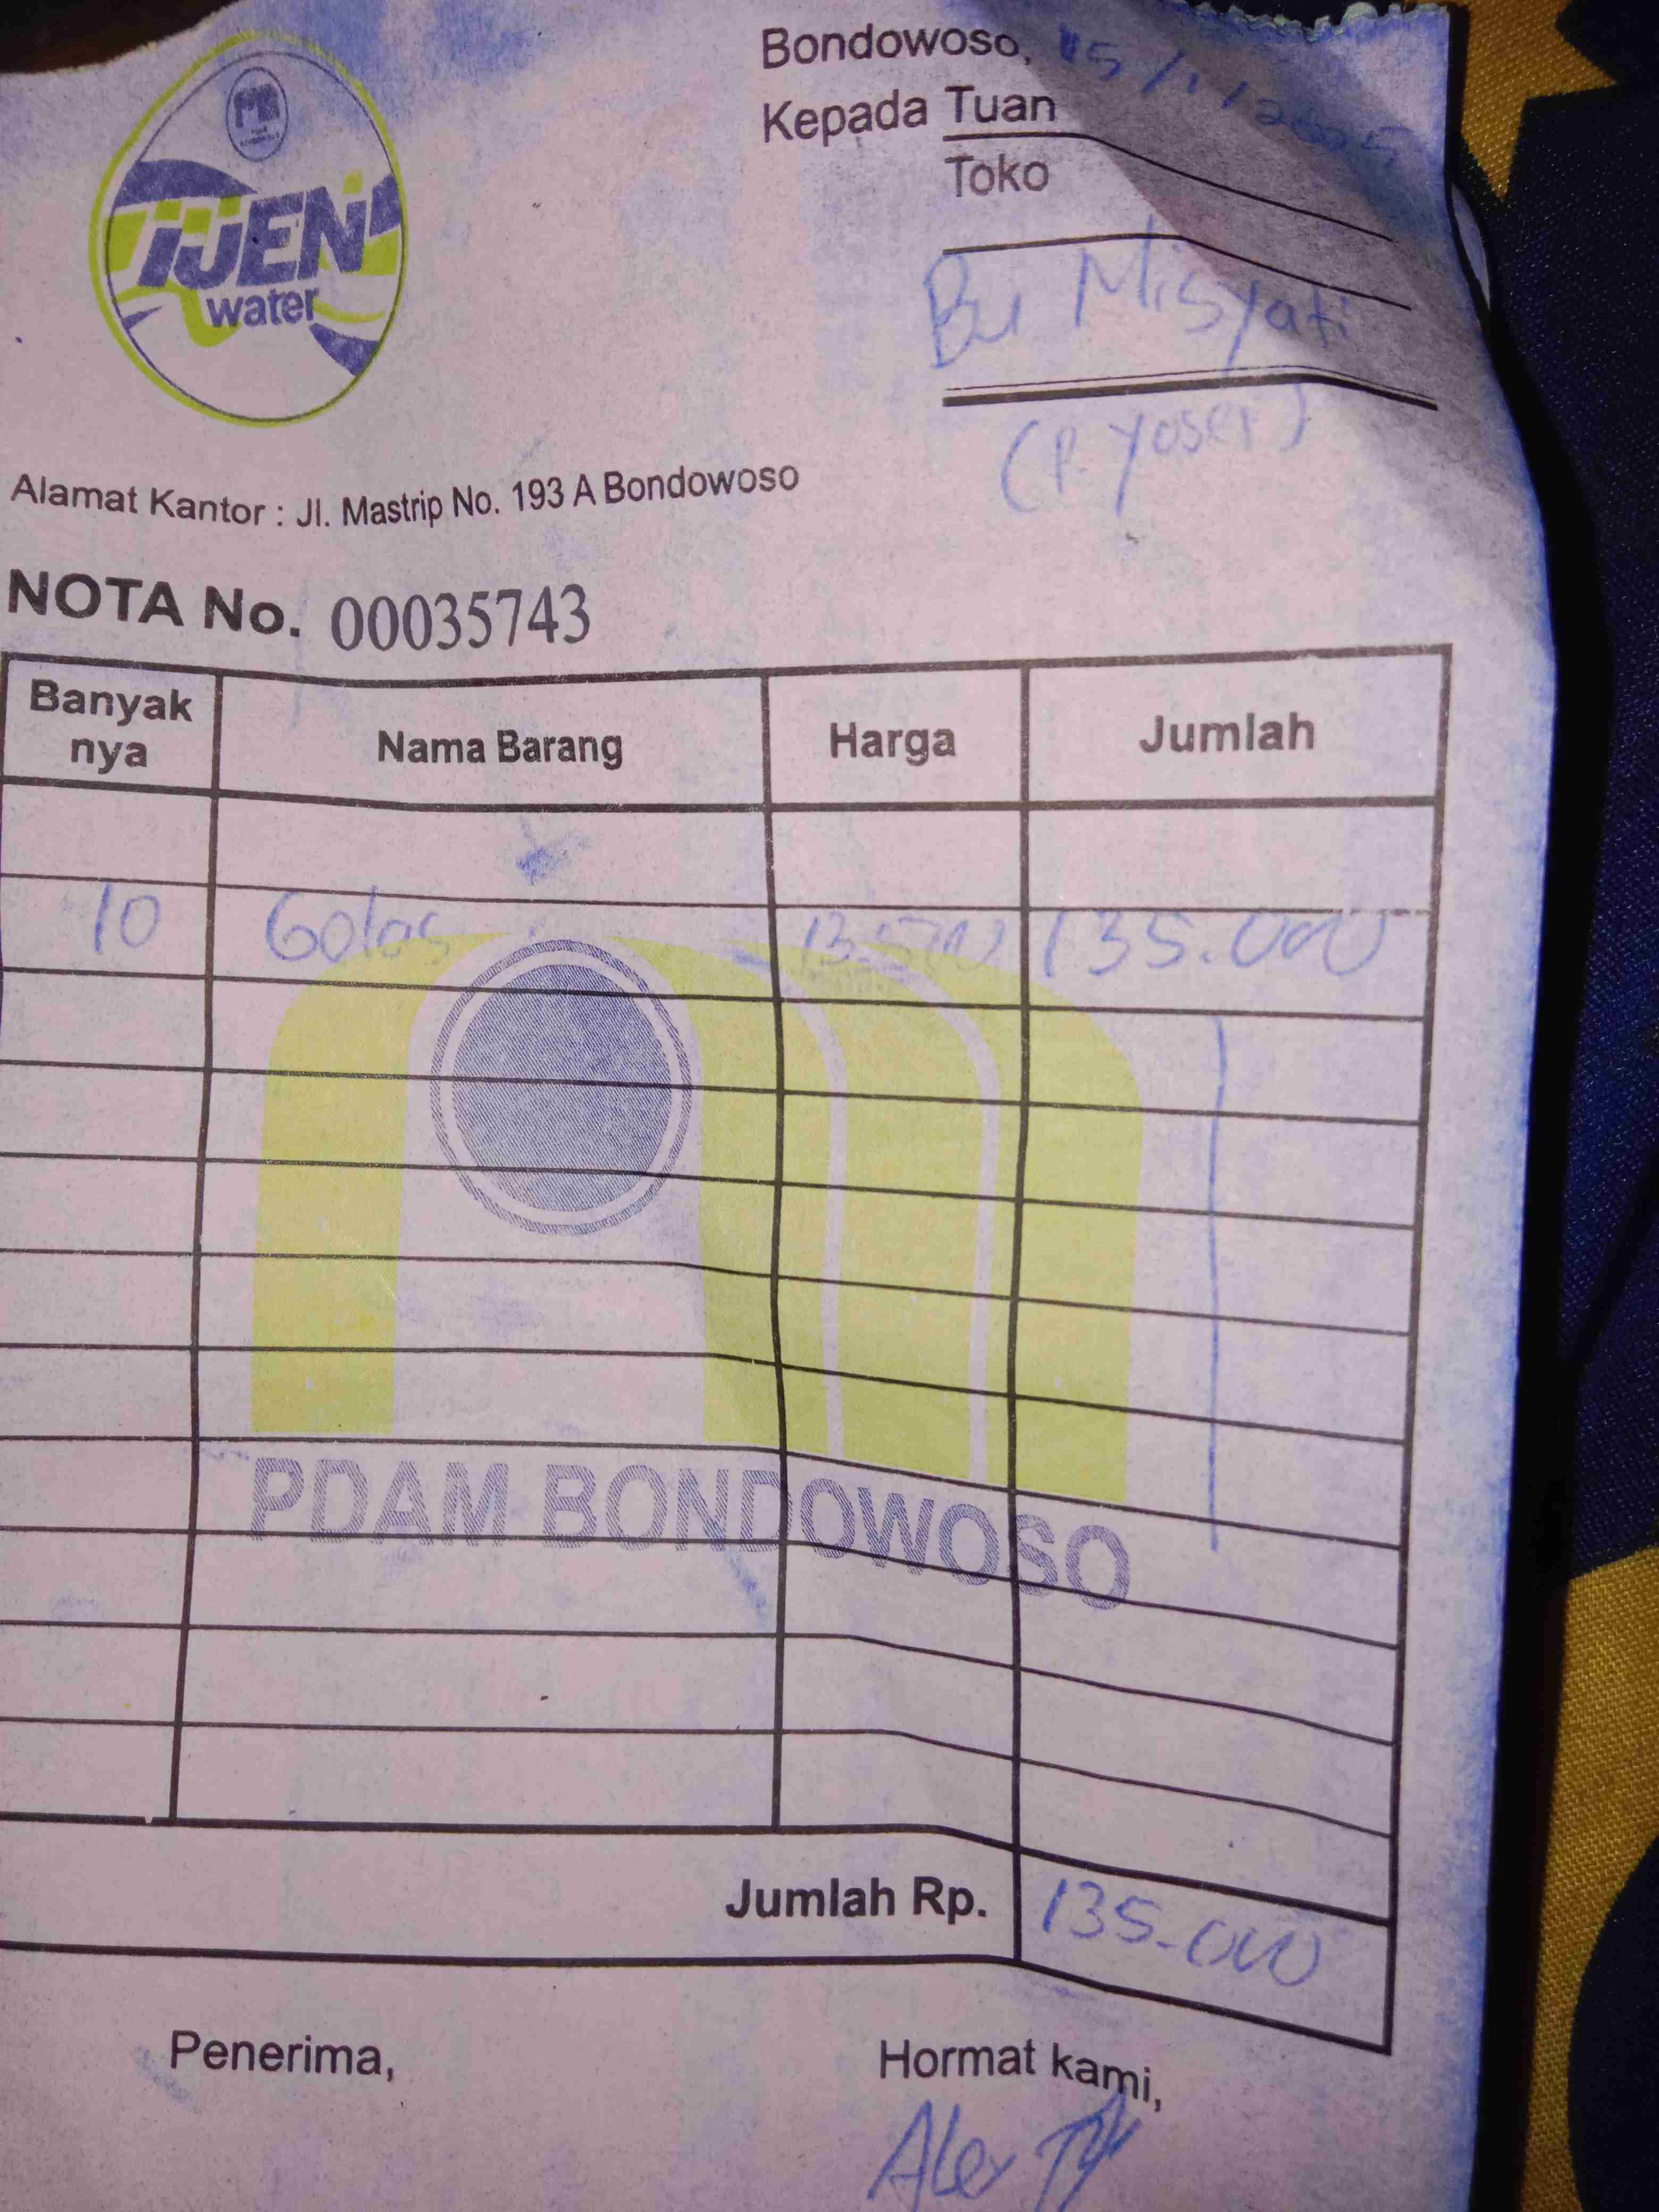 iJEN
water
Bondowoso, 15/11/2025
Kepada Tuan
Toko
Bu Misyati
(P. Yoser)
Alamat Kantor : Jl. Mastrip No. 193 A Bondowoso
NOTA No. 00035743
Banyak nya Nama Barang Harga Jumlah
10 Gelas 13.500 135.000
PDAM BONDOWOSO
Jumlah Rp. 135.000
Penerima, Hormat kami,
Alex